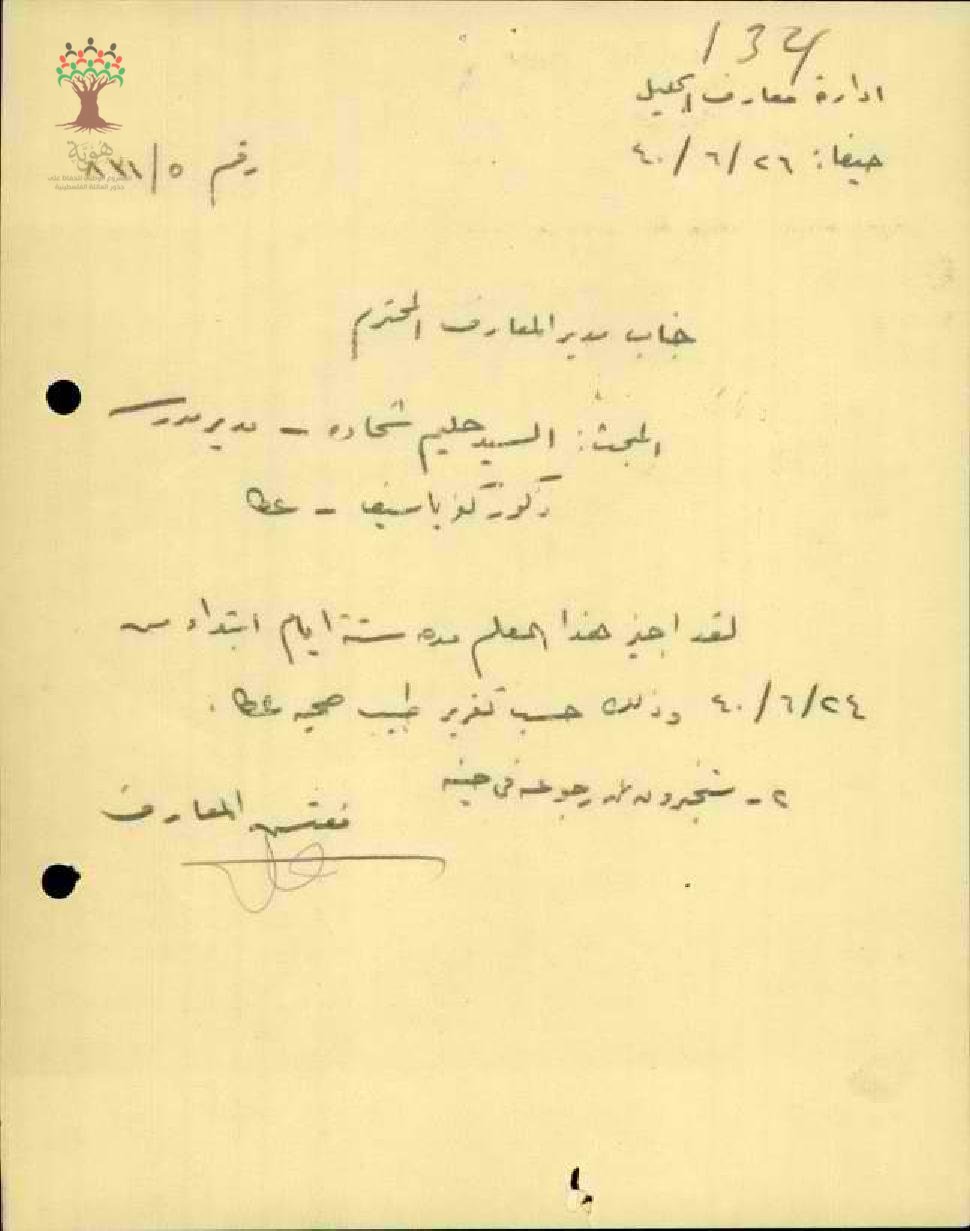 134
ادارة معارف الجليل
حيفا: ٢٦/٦/٤٠
رقم ٥/
هويّة
المشروع الوطني للحفاظ على
جذور العائلة الفلسطينية
جناب مدير المعارف المحترم
المبحث: السيد حليم شحاده – مدير مدرسة
ذكور كفر ياسيف – عكا
لقد اجيز هذا المعلم مده ستة ايام ابتداء من
٢٤/٦/٤٠ وذلك حسب تقرير طبيب صحيه عكا.
٢- ستخبرون عن رجوعه في حينه
مفتش المعارف